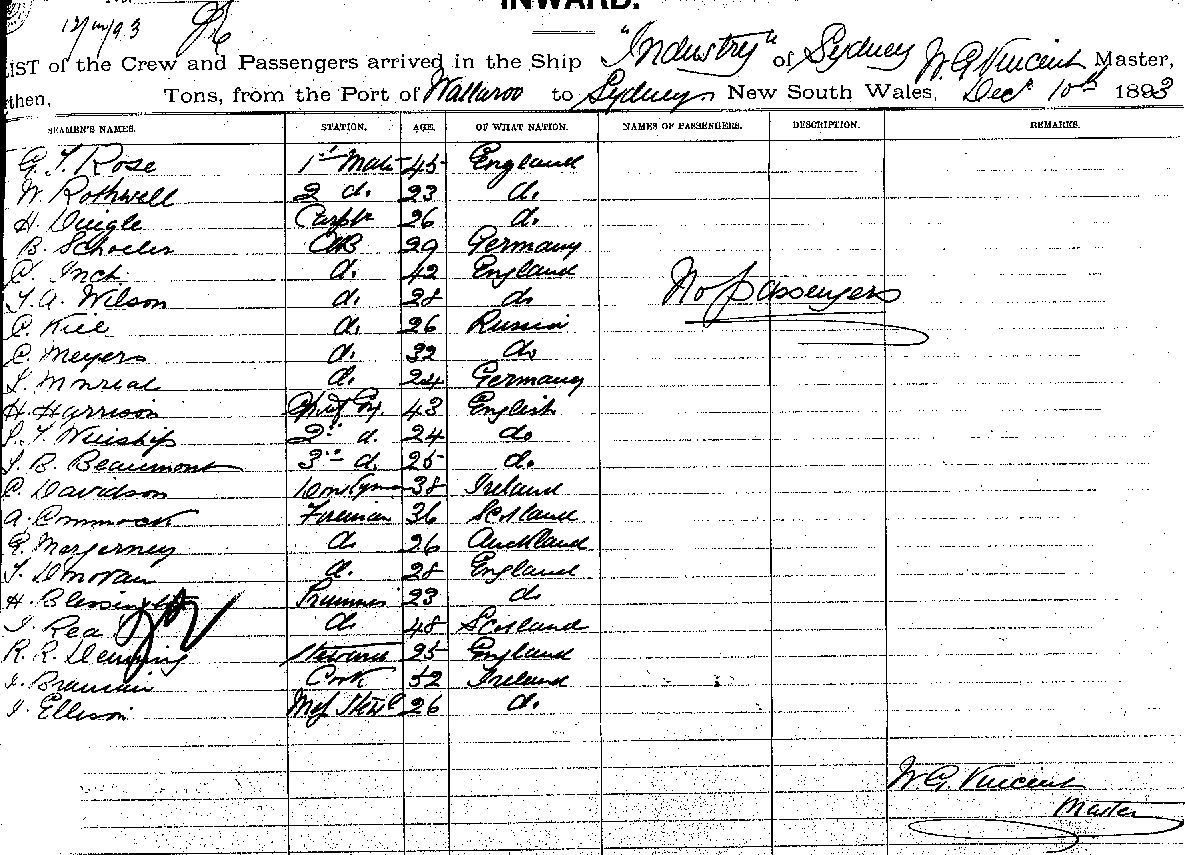 INWARD.
LIST of the Crew and Passengers arrived in the Ship "Industry" of Sydney W. G. Vincent Master,
then, Tons, from the Port of Wallaroo to Sydney New South Wales, Decr 10th 1893
SEAMEN'S NAMES. STATION. AGE. OF WHAT NATION. NAMES OF PASSENGERS. DESCRIPTION. REMARKS.
G. T. Rose 1st Mate 45 England
W. Rothwell 2 d. 23 d.
H. Daigle Carptr 26 d.
B. AB 29 Germany
C. Inch d. 42 England
T. A. Wilson d. 28 do
No passengers
C. Kiel d. 26 Russia
C. Meyers d. 32 do
T. Monreal d. 24 Germany
H. Harrison Chief Eng. 43 English
T. Winship 2nd d. 24 do
T. B. Beaumont 3rd d. 25 d.
C. Davidson 38 Ireland
A. Fireman 36 Scotland
d. 26 Auckland
T. Donovan d. 28 England
H. Trimmer 23 do
J. Rea d. 48 Scotland
R. R. Steward 25 England
J. Cook 52 Ireland
J. Ellison Mess Stewd 26 d.
W. G. Vincent
Master